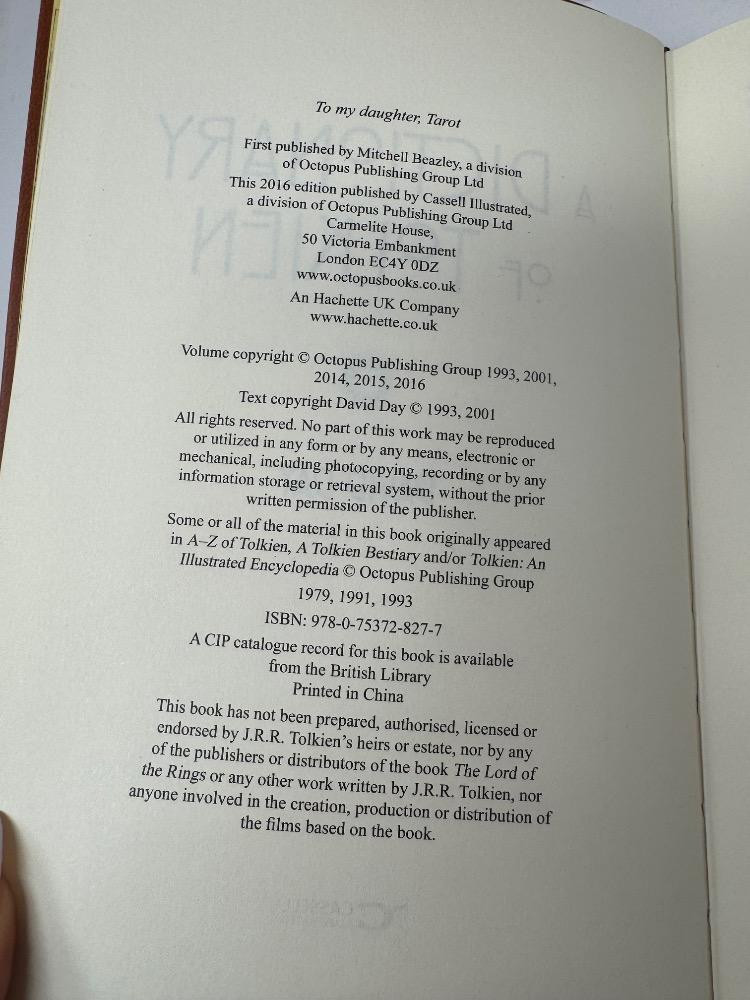 To my daughter, Tarot
First published by Mitchell Beazley, a division
of Octopus Publishing Group Ltd
This 2016 edition published by Cassell Illustrated,
a division of Octopus Publishing Group Ltd
Carmelite House,
50 Victoria Embankment
London EC4Y 0DZ
www.octopusbooks.co.uk
An Hachette UK Company
www.hachette.co.uk
Volume copyright © Octopus Publishing Group 1993, 2001,
2014, 2015, 2016
Text copyright David Day © 1993, 2001
All rights reserved. No part of this work may be reproduced
or utilized in any form or by any means, electronic or
mechanical, including photocopying, recording or by any
information storage or retrieval system, without the prior
written permission of the publisher.
Some or all of the material in this book originally appeared
in A–Z of Tolkien, A Tolkien Bestiary and/or Tolkien: An
Illustrated Encyclopedia © Octopus Publishing Group
1979, 1991, 1993
ISBN: 978-0-75372-827-7
A CIP catalogue record for this book is available
from the British Library
Printed in China
This book has not been prepared, authorised, licensed or
endorsed by J.R.R. Tolkien's heirs or estate, nor by any
of the publishers or distributors of the book The Lord of
the Rings or any other work written by J.R.R. Tolkien, nor
anyone involved in the creation, production or distribution of
the films based on the book.